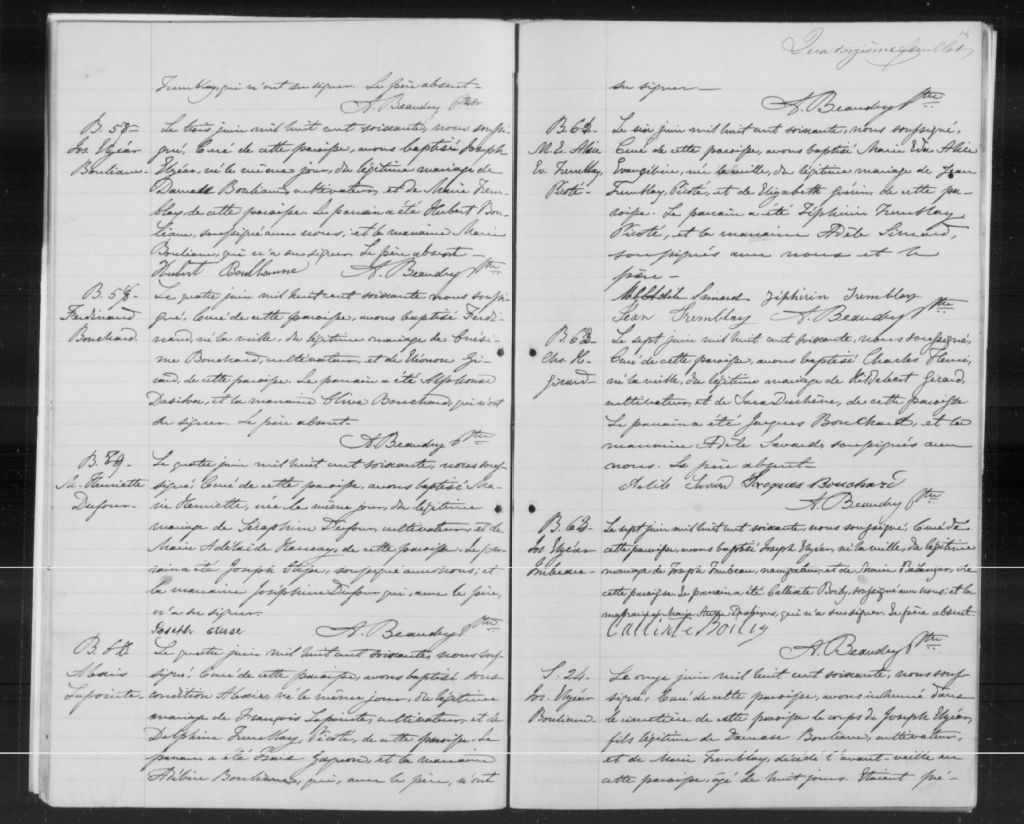 Tremblay, qui n'ont su signer. Le père absent.
A. Beaudry Ptre
B. 58-
Jos. Elzéar
Bouliane.
Le trois juin mil huit cent soixante, nous soussi-
gné, Curé de cette paroisse, avons baptisé Joseph
Elzéar, né le même jour, du légitime mariage de
Damase Bouliane, cultivateur, et de Marie Trem-
blay, de cette paroisse. Le parrain a été Hubert Bou-
liane, soussigné avec nous, et la marraine Marie
Bouliane, qui n'a su signer. Le père absent.
Hubert Boullianne A. Beaudry Ptre
Ferdinand
Bouchard.
Le quatre juin mil huit cent soixante, nous soussi-
gné, Curé de cette paroisse, avons baptisé Ferdi-
nand, né la veille, du légitime mariage de
Bouchard, cultivateur, et de Eléonore Gi-
rard, de cette paroisse. Le parrain a été Alphonse
et la marraine Olive Bouchard, qui n'ont
su signer. Le père absent.
A. Beaudry Ptre
M. Henriette
Dufour-
Le quatre juin mil huit cent soixante, nous sous-
signé, Curé de cette paroisse, avons baptisé Ma-
rie Henriette, née le même jour, du légitime
mariage de Séraphin Dufour, cultivateur, et de
Marie Adélaïde de cette paroisse. Le par-
rain a été Joseph soussigné avec nous, et
la marraine Joséphine Dufour qui, avec le père,
n'a su signer.
Joseph A. Beaudry Ptre
Alexis
Lapointe.
Le quatre juin mil huit cent soixante, nous sous-
signé, Curé de cette paroisse, avons baptisé sous
condition Alexis, né le même jour, du légitime
mariage de François Lapointe, cultivateur, et de
Delphine Tremblay, Picoté, de cette paroisse. Le
parrain a été Gagnon, et la marraine
Bouliane, qui, avec le père, n'ont
14
Quatorzième feuillet
su signer-
A. Beaudry Ptre
M. E. Alice
Ev. Tremblay,
Picoté-
Le six juin mil huit cent soixante, nous soussigné,
Curé de cette paroisse, avons baptisé Marie Eda Alice
Evangéline, née la veille, du légitime mariage de Jean
Tremblay, Picoté, et de Elizabeth Guérin, de cette pa-
roisse. Le parrain a été Zéphirin Tremblay
Picoté, et la marraine Adèle Simard,
soussignés avec nous et le
père-
Simard Zéphirin Tremblay
Jean Tremblay A. Beaudry Ptre
Chs. H.
Girard-
Le sept juin mil huit cent soixante, nous soussigné,
Curé de cette paroisse, avons baptisé Charles Henri,
né la veille, du légitime mariage de Girard,
cultivateur, et de Duchêne, de cette paroisse
Le parrain a été Jacques Bouchard, et la
marraine Adèle Savard, soussignés avec
nous. Le père absent-
Savard Jacques Bouchard
A. Beaudry Ptre
Jos. Elzéar
Imbeau-
Le sept juin mil huit cent soixante, nous soussigné, Curé de
cette paroisse, avons baptisé Joseph Elzéar, né la veille, du légitime
mariage de Joseph Imbeau, navigateur, et de Marie Bélanger, de
cette paroisse. Le parrain a été Calixte Boily, soussigné avec nous; et la
marraine Marie qui n'a su signer. Le père absent.
Boilly
A. Beaudry Ptre
S. 24-
Jos. Elzéar
Bouliane-
Le onze juin mil huit cent soixante, nous sous-
signé, Curé de cette paroisse, avons inhumé dans
le cimetière de cette paroisse le corps de Joseph Elzéar,
fils légitime de Damase Bouliane, cultivateur,
et de Marie Tremblay, décédé l'avant-veille en
cette paroisse, âgé de huit jours. Etaient pré-